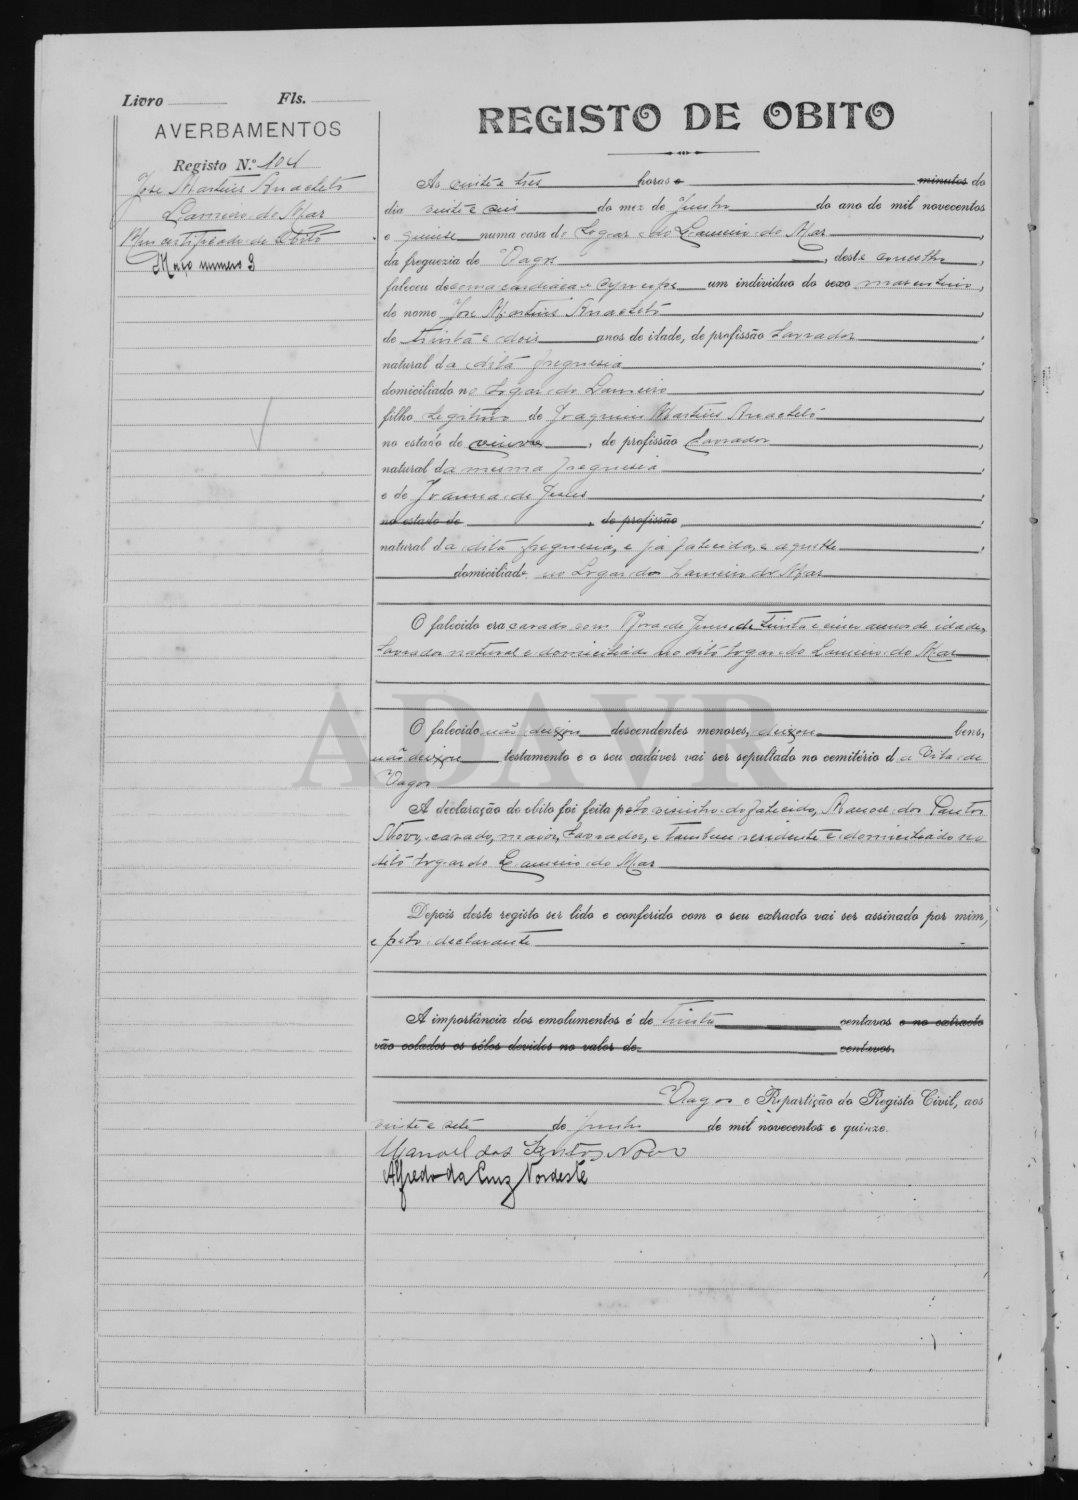 Livro Fls.
AVERBAMENTOS
Registo N.º 104
José Martins Anacleto
Lameiro do Mar
Um certificado de obito
Maço numero 3
REGISTO DE OBITO
As vinte e tres horas e minutos do
dia vinte e seis do mez de Junho do ano de mil novecentos
e quinze numa casa do Logar do Lameiro do Mar,
da freguezia de Vagos, deste concelho,
faleceu de cardiaca um individuo do sexo masculino,
de nome José Martins Anacleto
de trinta e dois anos de idade, de profissão Lavrador,
natural da dita freguesia
domiciliado no Logar do Lameiro
filho Legitimo de Joaquim Martins Anacleto
no estado de viuvo, de profissão Lavrador
natural da mesma freguesia
e de Joanna de Jesus
no estado de , de profissão
natural da dita freguesia, e já falecida, e aquelle
domiciliado no Logar do Lameiro do Mar
O falecido era casado com Rosa de Jesus de trinta e cinco annos de idade,
natural e domiciliada no dito Logar do Lameiro do Mar
ADAVR
O falecido não deixou descendentes menores, deixou bens,
não deixou testamento e o seu cadáver vai ser sepultado no cemitério da Vila de
Vagos
A declaração do obito foi feita pelo visinho do falecido, Manoel dos Santos
Novo, casado, maior, Lavrador, e tambem residente e domiciliado no
dito Logar do Lameiro do Mar
Depois deste registo ser lido e conferido com o seu extracto vai ser assinado por mim,
e pelo declarante
A importância dos emolumentos é de trinta centavos e no extracto
vão colados os sêlos devidos no valor de centavos.
Vagos e Repartição do Registo Civil, aos
vinte e sete de Junho de mil novecentos e quinze.
Manoel dos Santos Novo
Alfredo da Cruz Nordeste